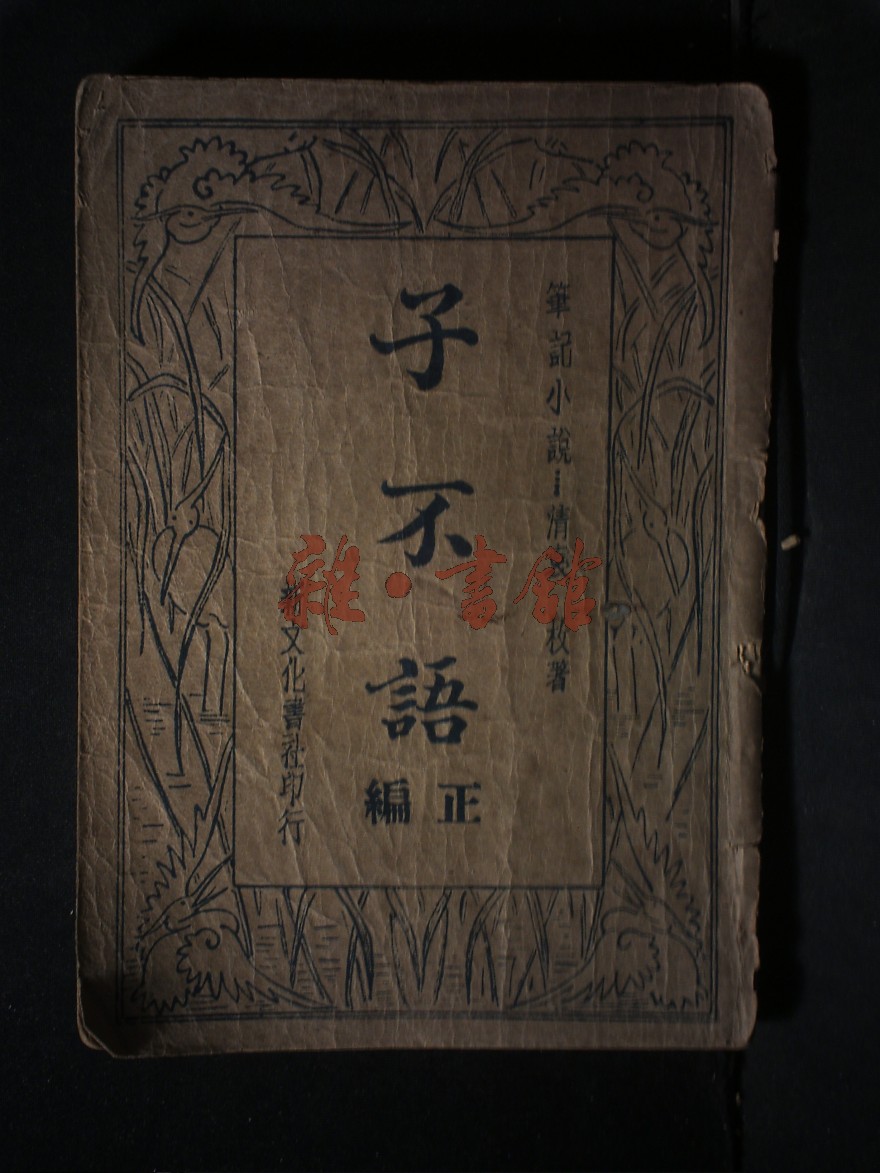 筆記小說…清袁枚著
子不語
正編
新文化書社印行
雜·書館